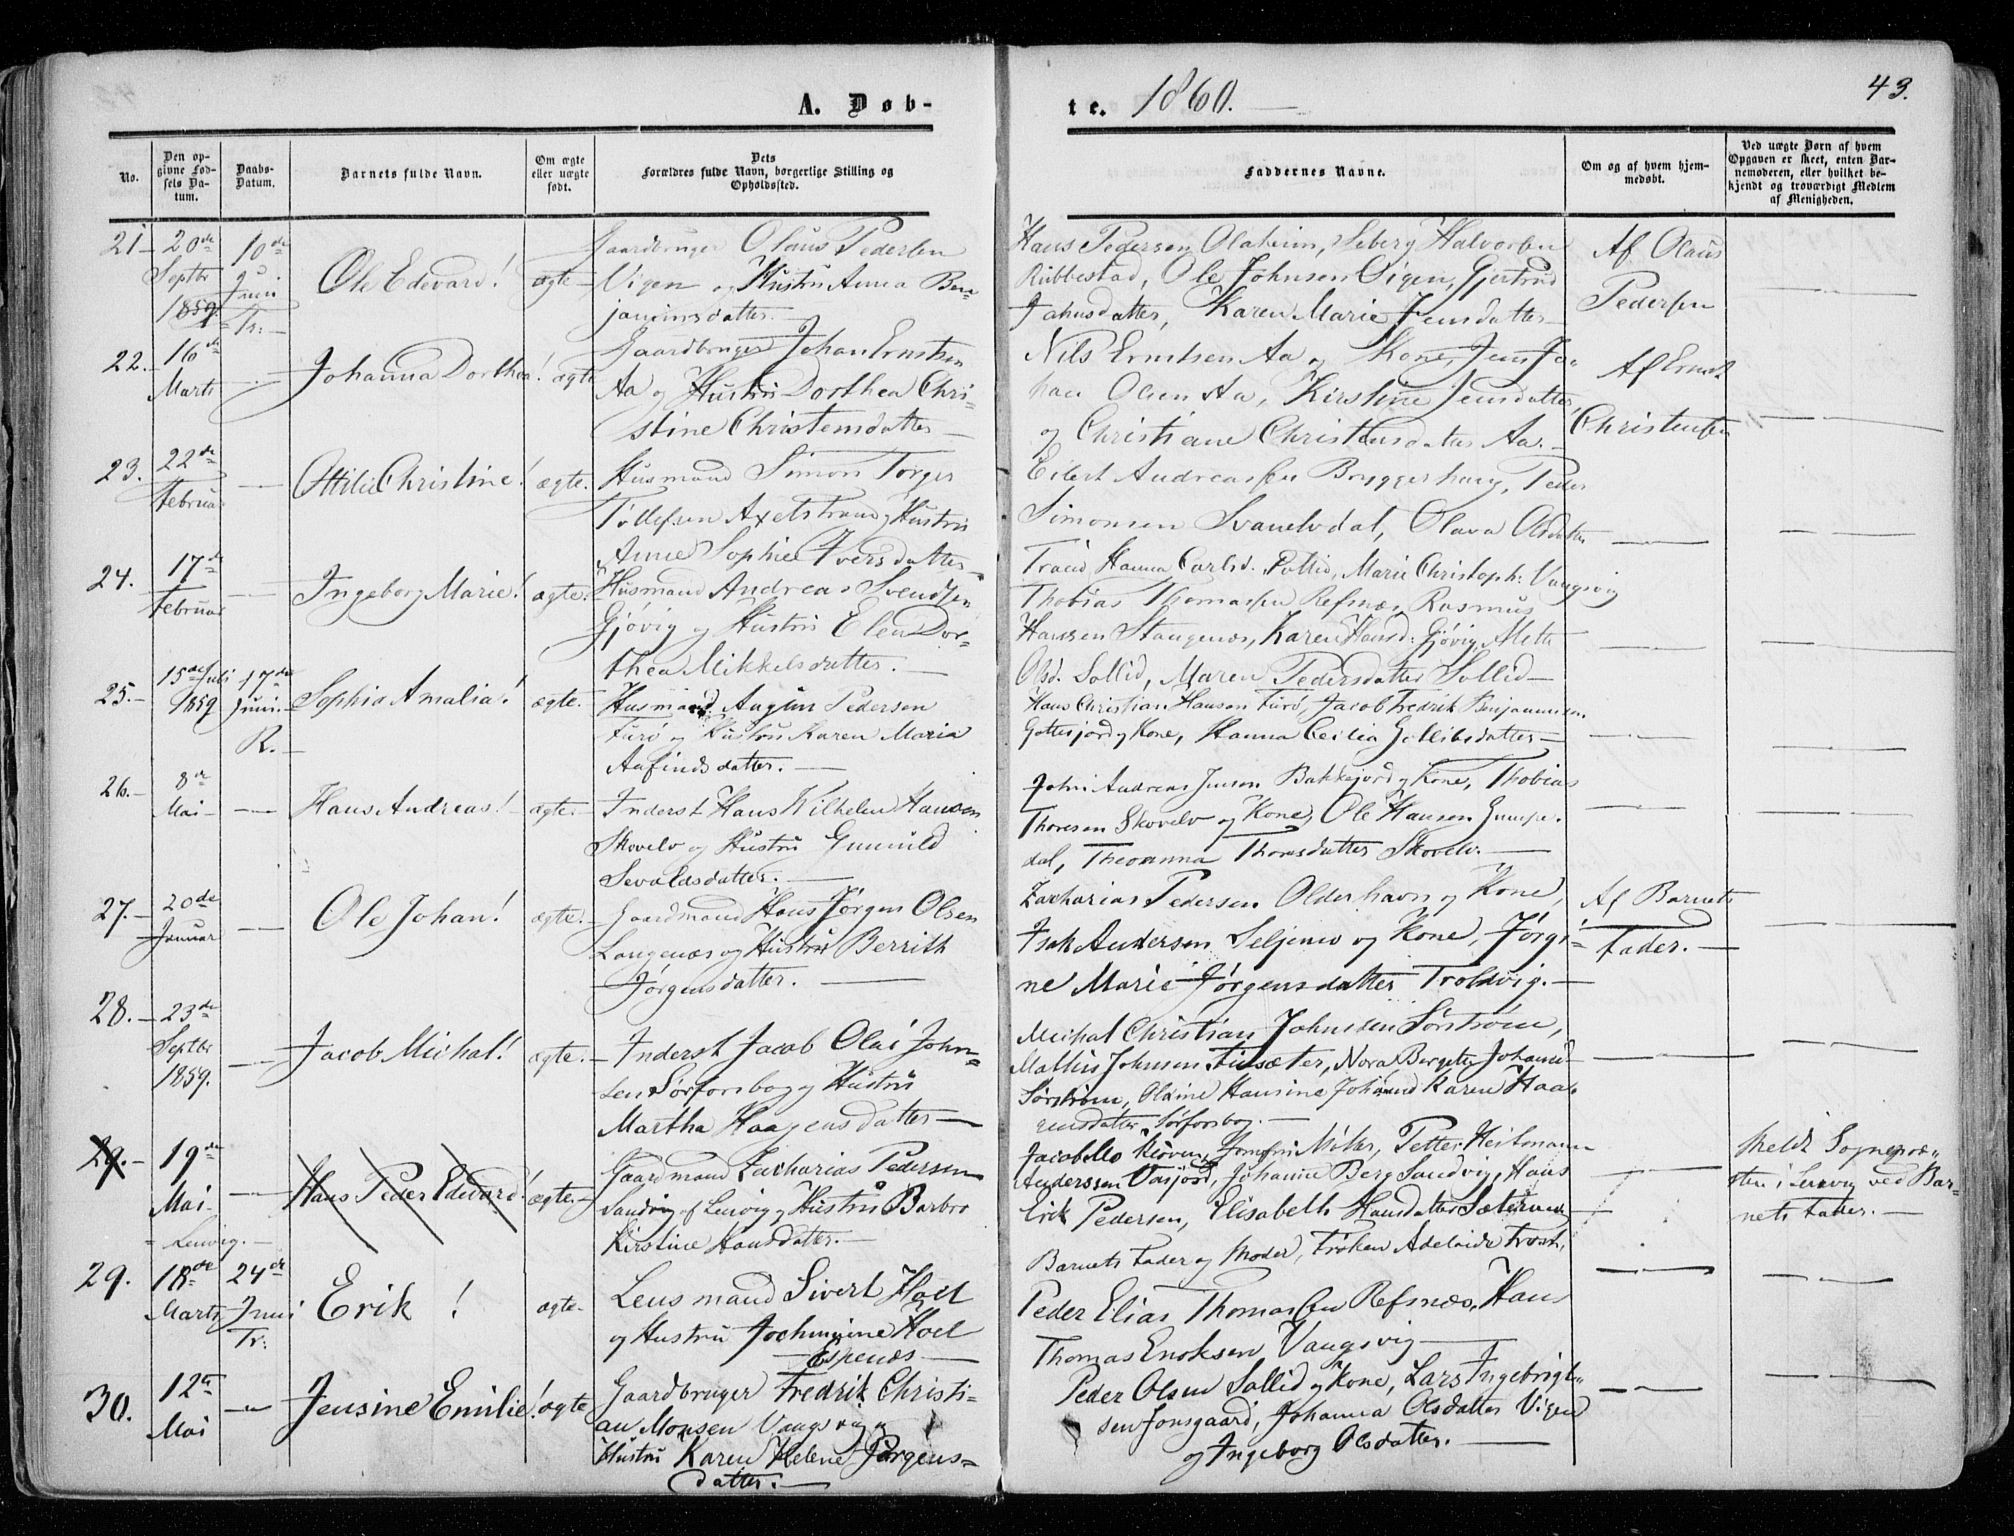 A. Døb-
te. 1860.
43.
No.
Den op-
givne Fød-
sels Da-
tum.
Daabs-
Datum.
Barnets fulde Navn.
Om ægte
eller uægte
født.
Dets
Forældres fulde Navn, borgerlige Stilling og
Opholdssted.
Faddernes Navne.
Om og af hvem hjem-
medøbt.
Ved uægte Børn af hvem
Opgaven er skeet, enten Bar-
nemoderen, eller hvilket be-
kjendt og troværdigt Medlem
af Menigheden.
21- 20de
Septbr
1859.
10de
Juni
Tr:
Ole Edevard!
ægte
Gaardbruger Olaus Pedersen
Vigen og Hustru Anna Ben-
jaminsdatter.
Hans Pedersen Olaheim, Seberg Halvorsen
Rubbestad, Ole Johnsen Vigen, Gjertrud
Jahnsdatter, Karen Marie Jensdatter
Af Olaus
Pedersen
22. 16de
Marts
Johanna Dorthea!
ægte
Gaardbruger Johan Erntsen
Aa og Hustru Dorthea Chri-
stine Christensdatter
Nils Erntsen Aa og Kone, Jens Jo-
han Olsen Aa, Kirstine Jensdatter,
og Christiane Christensdatter Aa.
Af Ernst
Christensen
23. 22de
Februar
Ottilie Christine!
ægte.
Husmand Simon Torger
Tollefsen Axelstrand og Hustru
Anne Sophie Iversdatter
Eilert Andreassen Bryggerhaug, Peder
Simonsen Svanelvdal, Olava Olsdatter
Traud Hanna Carlsd. Sollid, Marie Christoph: Vangsvig
24. 17de
Februar
Ingeborg Marie!
ægte.
Husmand Andreas Svendsen
Gjøvig og Hustru Elen Dor-
thea Mikkelsdatter.
Thobias Thomassen Refsnæs, Rasmus
Hansen Stangenæs, Karen Hansd: Gjøvig, Mette
Olsd. Sollid, Maren Pedersdatter Sollid
25.- 15de Juli
1859
17de
Juni.
R.
Sophia Amalia!
ægte.
Husmand August Pedersen
Turø og Hustru Karen Maria
Aafindsdatter.
Hans Christian Hansen Turø, Jacob Fredrik Benjaminsen
Gottesjord og Kone, Hanna Cecilia Gottlibsdatter
26.- 8de
Mai
Hans Andreas!
ægte.
Inderst Hans Vilhelm Hansen
Skovelv og Hustru Gunnild
Sevaldsdatter.
John Andreas Jensen Bakkejord og Kone, Thobias
Thoresen Skovelv og Kone, Ole Hansen Gumpe-
dal, Theoanna Thoresdatter Skovelv.
27.- 20de
Januar
Ole Johan!
ægte.
Gaardmand Hans Jørgen Olsen
Langenæs og Hustru Berrith
Jørgensdatter.
Zacharias Pedersen Olderhavn og Kone,
Isak Andersen Seljenes og Kone, Jørgi-
ne Marie Jørgensdatter Troldvig.
Af Barnets
Fader.
28.- 23de
Septbr
1859.
Jacob Michal!
ægte.
Inderst Jacob Olai John-
sen Sørforsbog og Hustru
Martha Haagensdatter
Michal Christian Johnsen Sørstrøm,
Mathis Johnsen Finsæter, Nora Bergete Johansd
Sørstrøm, Oldine Hansine Johansd Karen Haa-
gensdatter Sørforsbog.
29.- 19de
Mai
Lenvig.
Hans Peder Edevard!
ægte.
Gaardmand Zacharias Pedersen
Sandvig af Lenvig og Hustru Barbro
Kirstine Hansdatter.
Petter Heitmann
Anderssen Vasjord, Johanne Berg Sandvig, Hans
Erik Pedersen, Elisabeth Hansdatter Sæteren
Meldt Sognepræ-
sten i Lenvig ved Bar-
nets Fader.
29. 18de
Marts
24de
Juni
Tr:
Erik!
ægte.
Lensmand Sivert Hoel
og Hustru Jochumine Hoel
Espenæs
Barnets Fader og Moder, Frøken Adelaide Frost,
Peder Elias Thomassen Refsnæs, Hans
Thomas Enoksen Vangsvig
30. 12te
Mai
Jensine Emilie!
ægte
Gaardbruger Fredrik Christi-
an Monsen Vangsvig og
Hustru Karen Helene Jørgens-
datter.
Peder Olsen Sollid og Kone, Lars Ingebrigt-
sen Jonsgaard, Johanna Olsdatter Vigen
og Ingeborg Olsdatter.